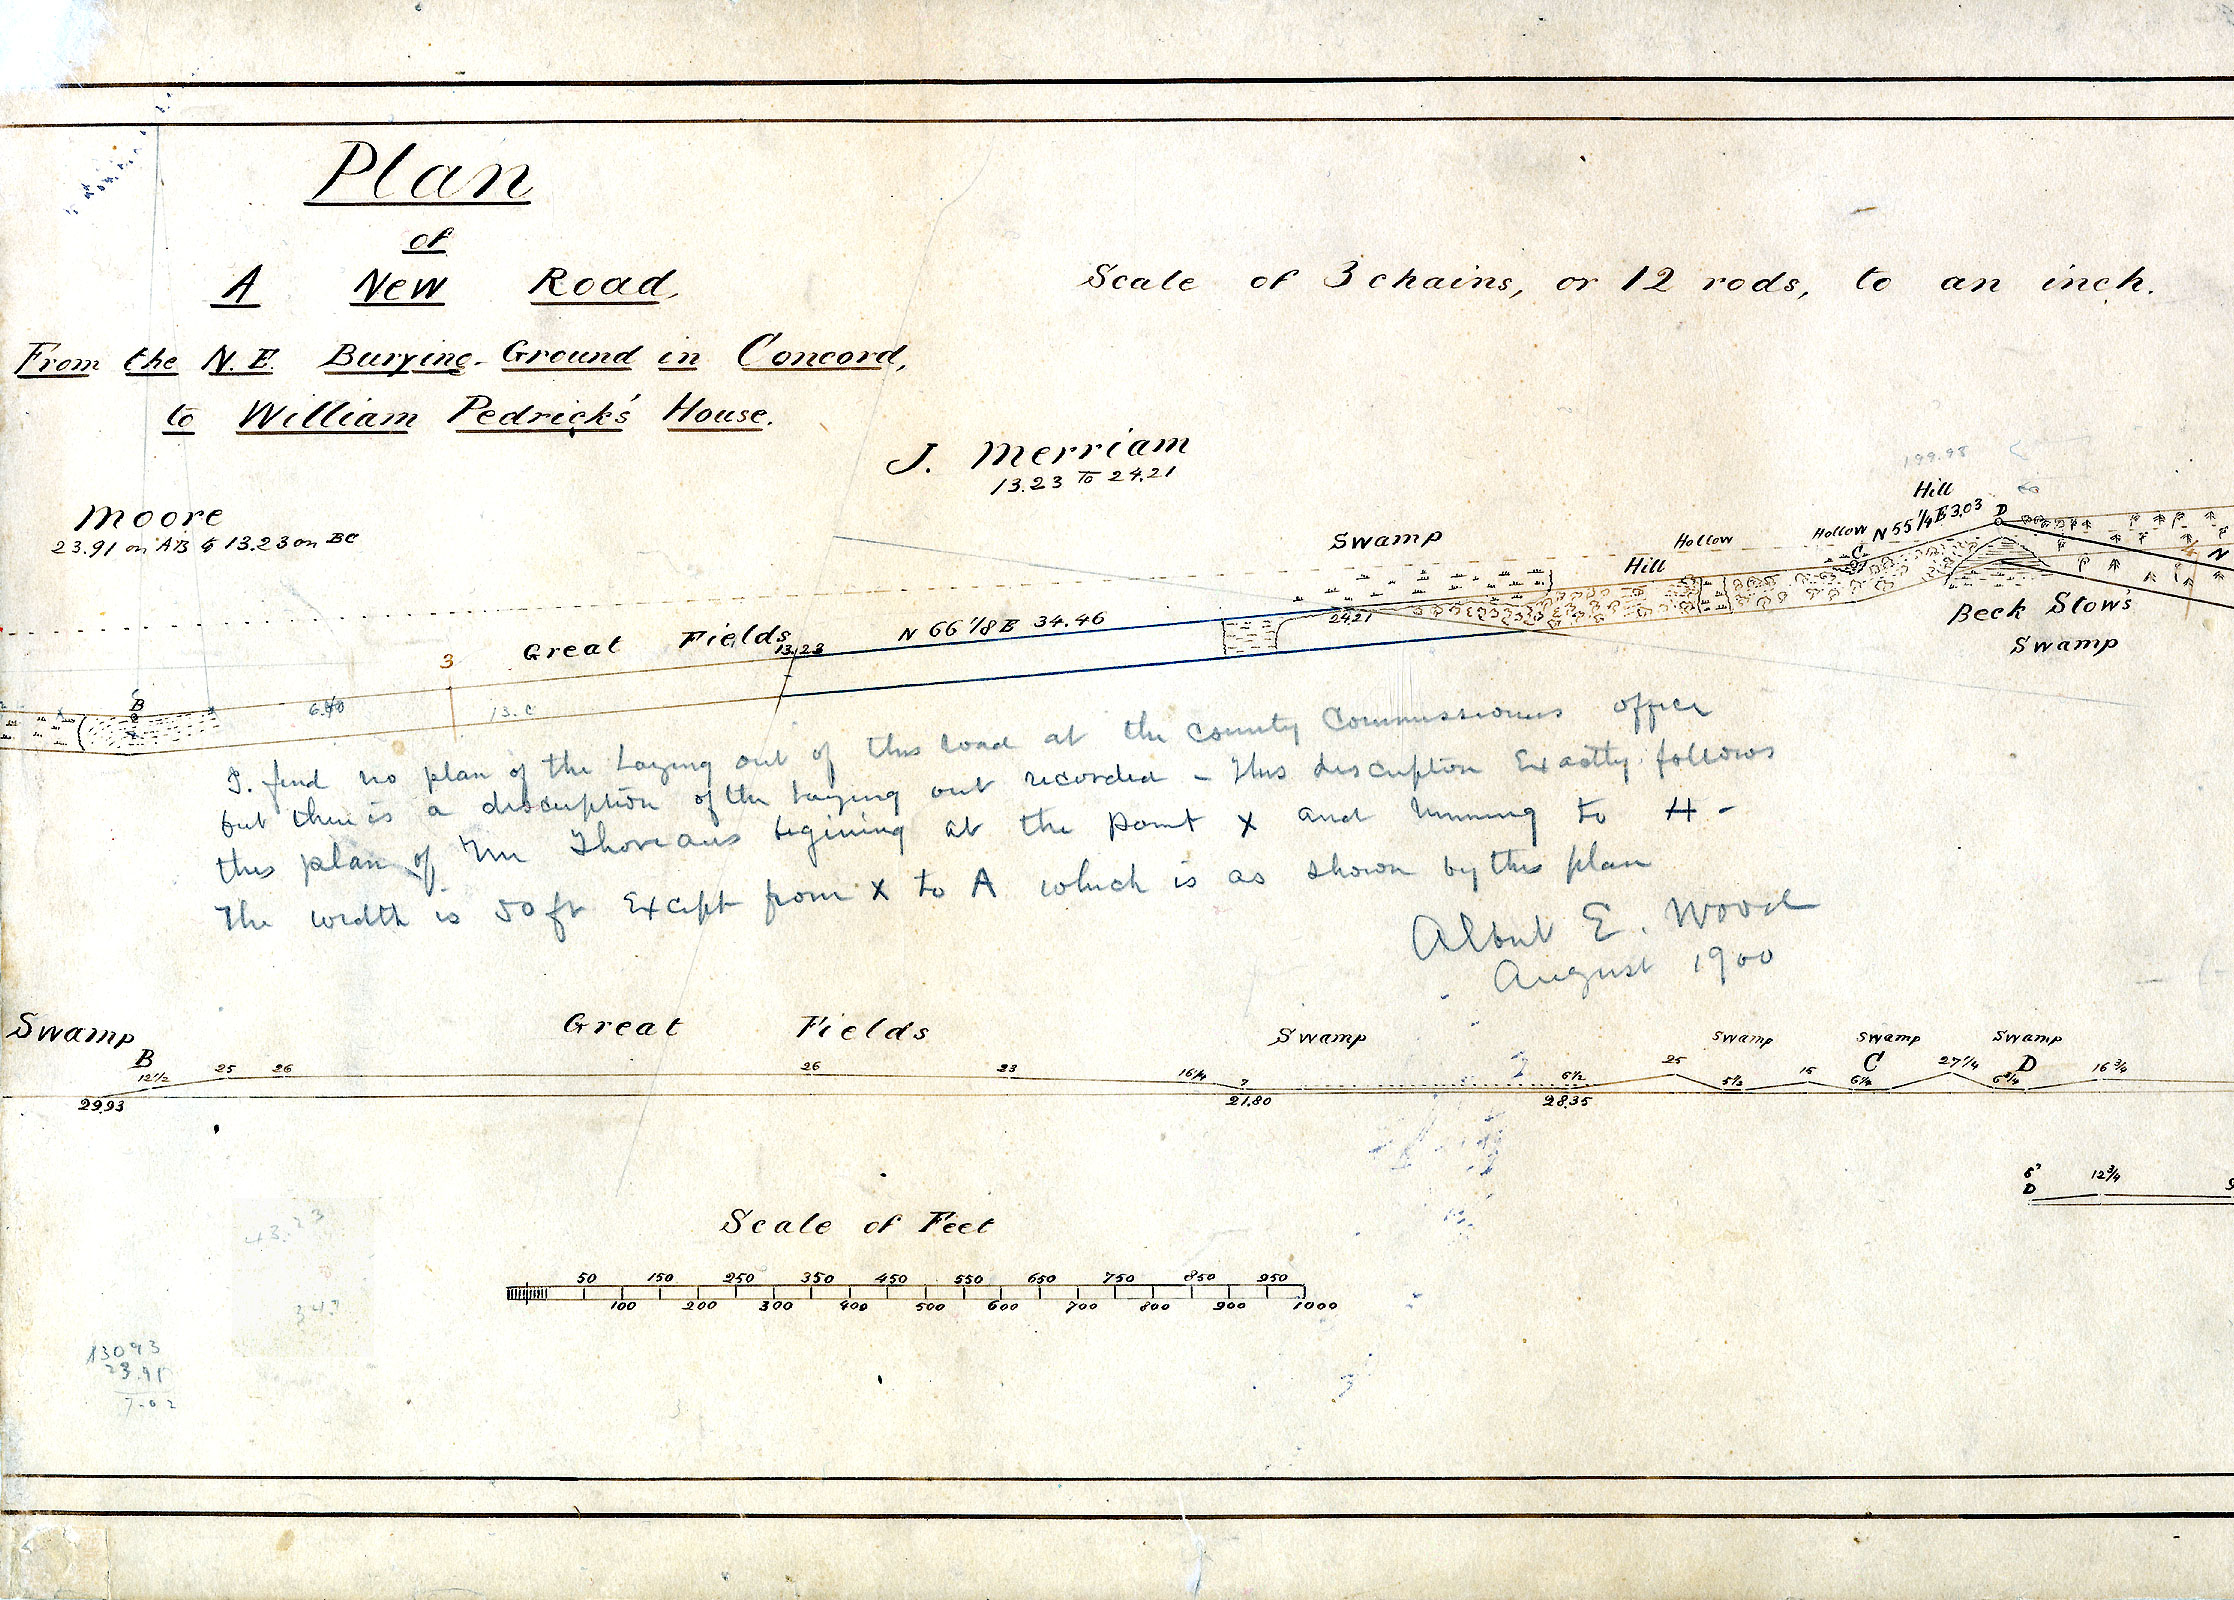 Plan
of
A New Road,
From the N.E. Burying-Ground in Concord,
to William Pedrick's House.
Scale of 3 chains, or 12 rods, to an inch.
J. Merriam
13.23 To 24.21
Moore
23.91 on AB & 13.23 on BC
199.98
Hill
N 55 1/4 E 3.03 D
Hollow
Hollow
C
Swamp
Hill
Beck Stow's
Swamp
N
24.21
N 66 1/8 E 34.46
Great Fields
13.23
3
B
6.40
13.C
I. find no plan of the Laying out of this road at the County Commissioners office
but there is a discription of the Laying out recorded - This discription Exactly follows
this plan of Mr Thoreaus begining at the point X and running to H -
The width is 50 ft Except from X to A which is as shown by this plan
Albert E. Wood
August 1900
Swamp
Great Fields
Swamp
Swamp
Swamp
Swamp
B
12 1/2
25
26
26
23
16 1/4
7
6 1/2
25
5 1/2
15
C
6 1/4
27 1/4
D
6 3/4
16 3/4
29.93
21.80
28.35
6
D
12 3/4
Scale of Feet
50 150 250 350 450 550 650 750 850 950
100 200 300 400 500 600 700 800 900 1000
43.23
347
13093
23.91
7.02